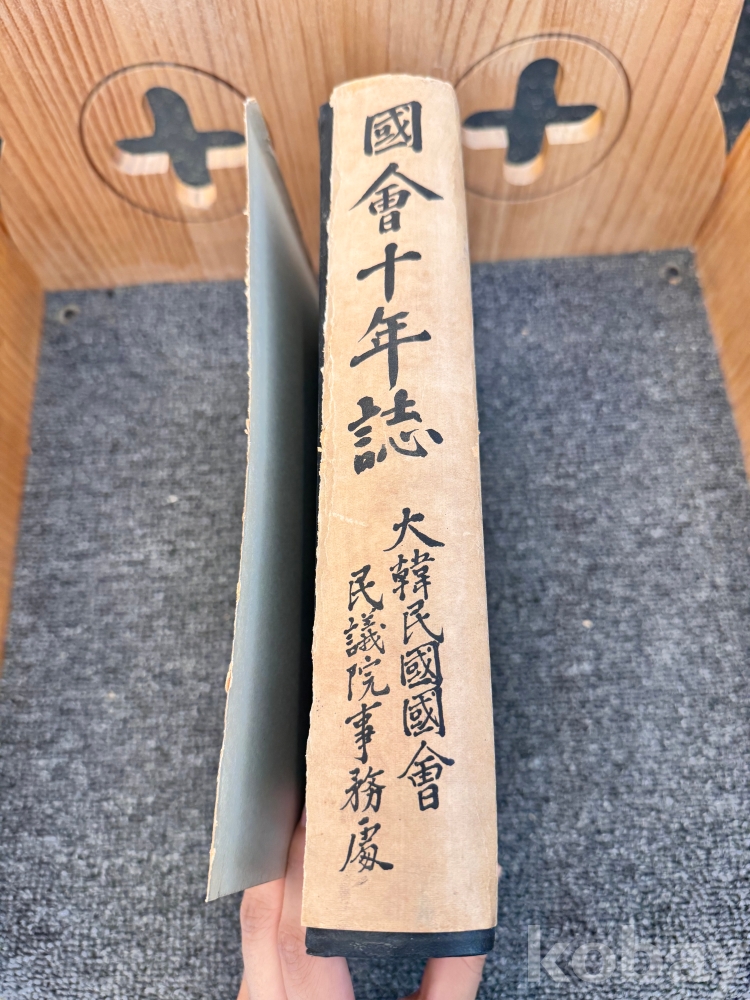 國會十年誌
大韓民國國會
民議院事務處
kobay